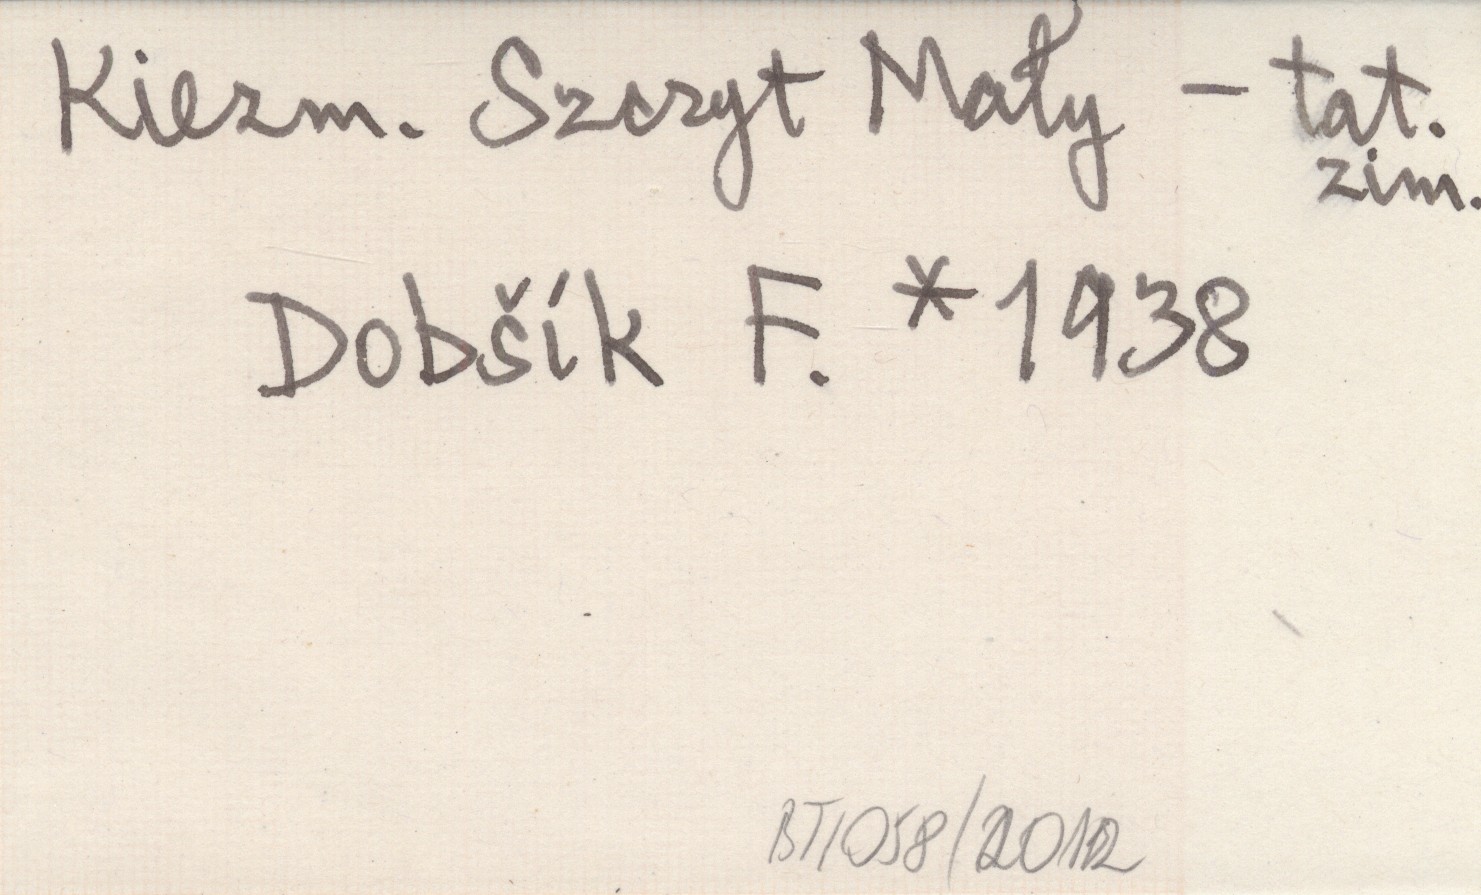 Kiezm. Szczyt Mały - tat.
zim.
Dobšík F. *1938
BT/058/2012